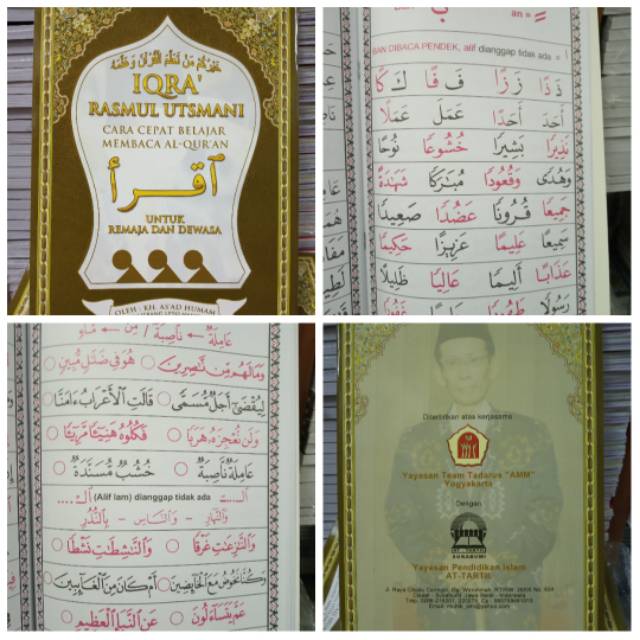 خَيْرُكُمْ مَنْ تَعَلَّمَ الْقُرْآنَ وَعَلَّمَهُ
IQRA'
RASMUL UTSMANI
CARA CEPAT BELAJAR
MEMBACA AL-QUR'AN
اقرأ
UNTUK
REMAJA DAN DEWASA
OLEH : KH. AS'AD HUMAM
an =
BAN DIBACA PENDEK, alif dianggap tidak ada = ا
ذَ ذًا زَ زًا فَ فًا كَ كًا
أَحَدَ أَحَدًا عَمَلَ عَمَلًا
نَذِيرًا بَشِيرًا خُشُوعًا نُوحًا
وَهُدًى وَقُعُودًا مُبَٰرَكًا شَهَٰدَةً
جَمِيعًا قُرُونًا عَضُدًا صَعِيدًا
سَمِيعًا عَلِيمًا عَزِيزًا حَكِيمًا
عَذَابًا أَلِيمًا عَالِيًا ظَلِيلًا
رَسُولًا
عَامِلَةٌ ← نَاصِبَةٌ / مِنْ ← مَاءٍ
وَمَالَهُم مِّن نَّٰصِرِينَ هُوَ فِي ضَلَٰلٍ مُّبِينٍ
لِيُقْضَىٰٓ أَجَلٌ مُّسَمًّى قَالَتِ ٱلْأَعْرَابُ ءَامَنَّا
وَلَن نُّعْجِزَهُۥ هَرَبًا فَكُلُوهُ هَنِيٓـًٔا مَّرِيٓـًٔا
عَامِلَةٌ نَّاصِبَةٌ خُشُبٌ مُّسَنَّدَةٌ
الــ .... (Alif lam) dianggap tidak ada
وَالنَّهَارِ - وَالنَّاسِ - بِالنُّذُرِ
وَٱلنَّٰزِعَٰتِ غَرْقًا وَٱلنَّٰشِطَٰتِ نَشْطًا
وَكُنَّا نَخُوضُ مَعَ ٱلْخَآئِضِينَ أَمْ كَانَ مِنَ ٱلْغَآئِبِينَ
عَمَّ يَتَسَآءَلُونَ عَنِ ٱلنَّبَإِ ٱلْعَظِيمِ
Diterbitkan atas kerjasama
Yayasan Team Tadarus "AMM"
Yogyakarta
Dengan
SUKABUMI
Yayasan Pendidikan Islam
AT-TARTIL